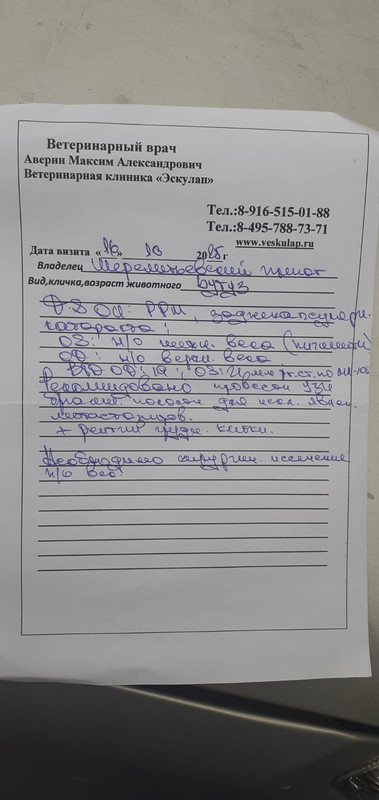 Ветеринарный врач
Аверин Максим Александрович
Ветеринарная клиника «Эскулап»
Тел.:8-916-515-01-88
Тел.:8-495-788-73-71
www.veskulap.ru
Дата визита «16» 2025г
Владелец Шереметьевский приют
Вид,кличка,возраст животного Бутуз
DS OU: PPM, заднекапсулярн.
катаракта;
OS: н/о нижн. века (пигментн)
OD: н/о верхн. века
OD: 19; OS: 21 мм рт.ст.
Рекомендовано провести УЗИ
брюшн. полости для искл. явлен.
метастазов.
+ рентген грудн. клетки.
Необходимо хирургич. иссечение
н/о век